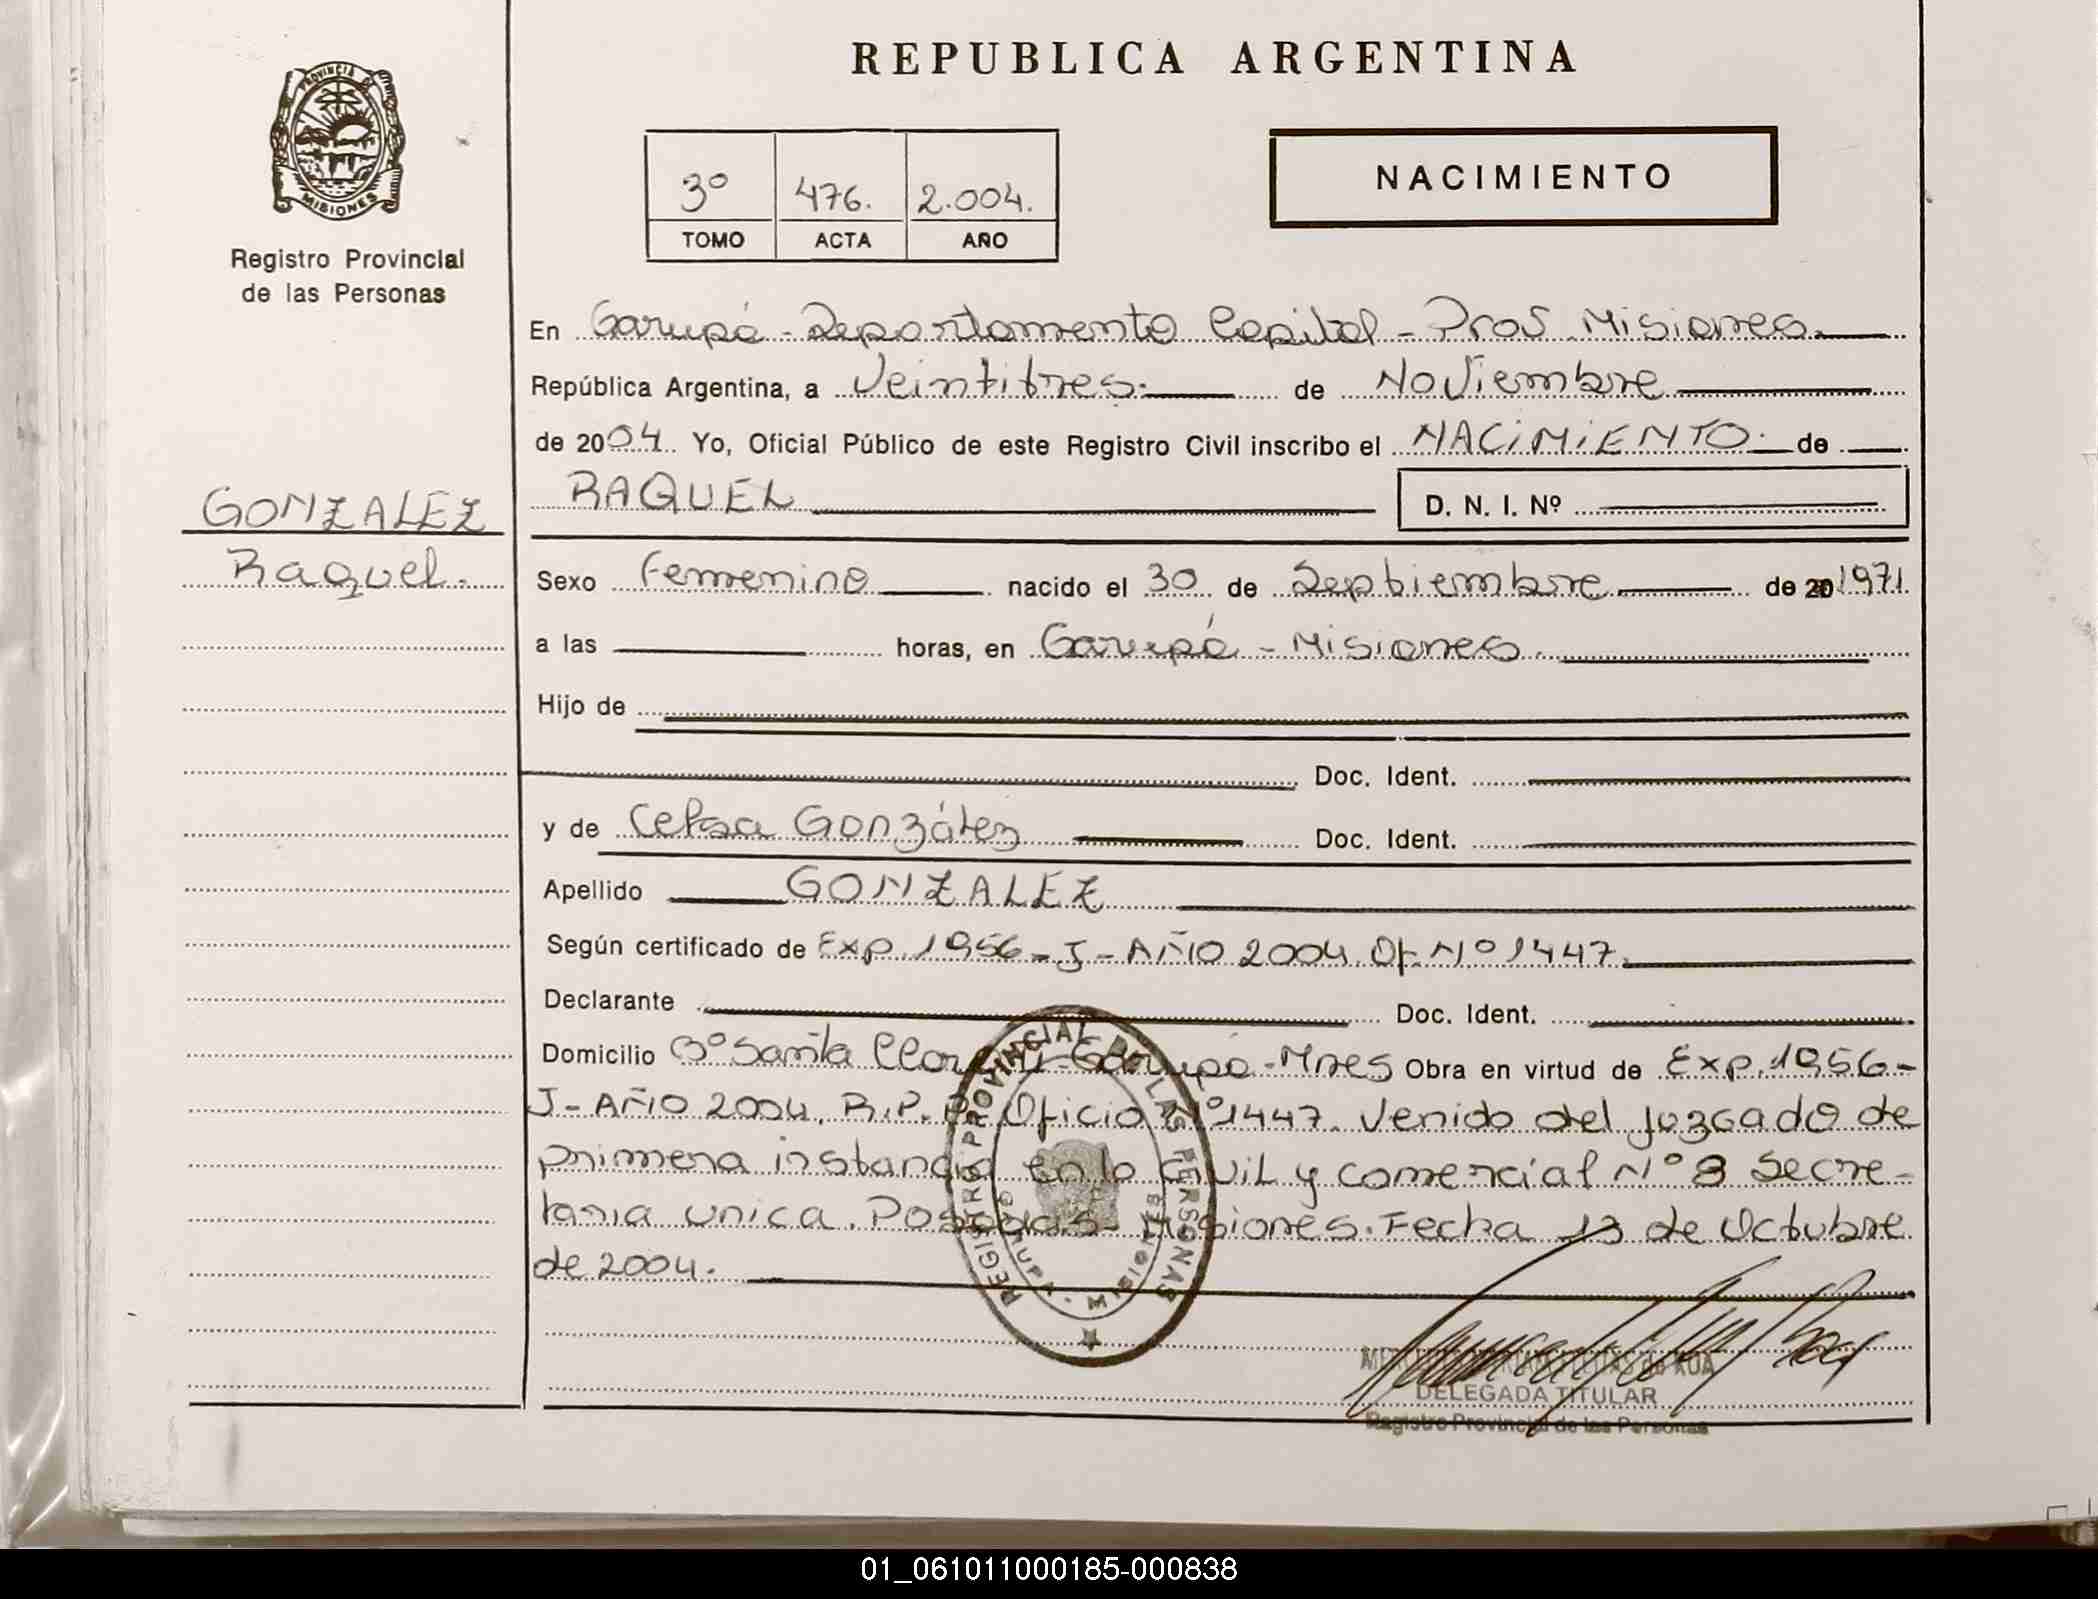 REPUBLICA ARGENTINA
PROVINCIA DE
MISIONES
Registro Provincial
de las Personas
3º 476. 2.004.
TOMO ACTA AÑO
NACIMIENTO
En Garupá - Departamento Capital - Prov. Misiones.
República Argentina, a Veintitres. de Noviembre
de 2004. Yo, Oficial Público de este Registro Civil inscribo el NACIMIENTO. de
GONZALEZ
Raquel.
RAQUEL D. N. I. Nº
Sexo Femenino nacido el 30 de Septiembre de 20 1971.
a las horas, en Garupá - Misiones.
Hijo de
Doc. Ident.
y de Celsa González Doc. Ident.
Apellido GONZALEZ
Según certificado de Exp. 1956 - J - AÑO 2004. Of. Nº 1447.
Declarante Doc. Ident.
Domicilio Bº Santa - Garupá - Mnes Obra en virtud de Exp. 1956 -
J - AÑO 2004. R.P.P. Oficio Nº 1447. Venido del juzgado de
primera instancia en lo civil y comercial Nº 8 Secre-
taria unica. Posadas - Misiones. Fecha 13 de Octubre
de 2004.
REGISTRO PROVINCIAL DE LAS PERSONAS
GARUPA - MISIONES
DELEGADA TITULAR
Registro Provincial de las Personas
01_061011000185-000838